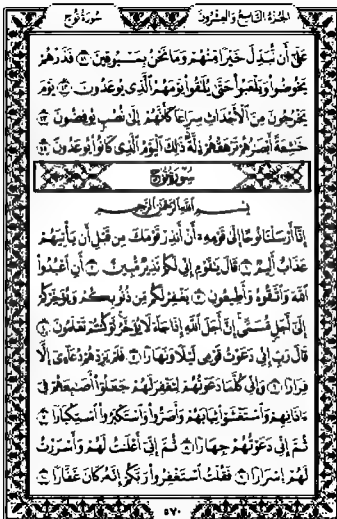 الجزء التاسع والعشرون سورة نوح
عَلَىٰ أَن نُّبَدِّلَ خَيْرًا مِّنْهُمْ وَمَا نَحْنُ بِمَسْبُوقِينَ ٤١ فَذَرْهُمْ
يَخُوضُوا۟ وَيَلْعَبُوا۟ حَتَّىٰ يُلَٰقُوا۟ يَوْمَهُمُ ٱلَّذِى يُوعَدُونَ ٤٢ يَوْمَ
يَخْرُجُونَ مِنَ ٱلْأَجْدَاثِ سِرَاعًا كَأَنَّهُمْ إِلَىٰ نُصُبٍ يُوفِضُونَ ٤٣
خَٰشِعَةً أَبْصَٰرُهُمْ تَرْهَقُهُمْ ذِلَّةٌ ذَٰلِكَ ٱلْيَوْمُ ٱلَّذِى كَانُوا۟ يُوعَدُونَ ٤٤
سورة نوح
بِسْمِ ٱللَّهِ ٱلرَّحْمَٰنِ ٱلرَّحِيمِ
إِنَّآ أَرْسَلْنَا نُوحًا إِلَىٰ قَوْمِهِۦٓ أَنْ أَنذِرْ قَوْمَكَ مِن قَبْلِ أَن يَأْتِيَهُمْ
عَذَابٌ أَلِيمٌ ١ قَالَ يَٰقَوْمِ إِنِّى لَكُمْ نَذِيرٌ مُّبِينٌ ٢ أَنِ ٱعْبُدُوا۟
ٱللَّهَ وَٱتَّقُوهُ وَأَطِيعُونِ ٣ يَغْفِرْ لَكُم مِّن ذُنُوبِكُمْ وَيُؤَخِّرْكُمْ
إِلَىٰٓ أَجَلٍ مُّسَمًّى إِنَّ أَجَلَ ٱللَّهِ إِذَا جَآءَ لَا يُؤَخَّرُ لَوْ كُنتُمْ تَعْلَمُونَ ٤
قَالَ رَبِّ إِنِّى دَعَوْتُ قَوْمِى لَيْلًا وَنَهَارًا ٥ فَلَمْ يَزِدْهُمْ دُعَآءِىٓ إِلَّا
فِرَارًا ٦ وَإِنِّى كُلَّمَا دَعَوْتُهُمْ لِتَغْفِرَ لَهُمْ جَعَلُوٓا۟ أَصَٰبِعَهُمْ فِىٓ
ءَاذَانِهِمْ وَٱسْتَغْشَوْا۟ ثِيَابَهُمْ وَأَصَرُّوا۟ وَٱسْتَكْبَرُوا۟ ٱسْتِكْبَارًا ٧
ثُمَّ إِنِّى دَعَوْتُهُمْ جِهَارًا ٨ ثُمَّ إِنِّىٓ أَعْلَنتُ لَهُمْ وَأَسْرَرْتُ
لَهُمْ إِسْرَارًا ٩ فَقُلْتُ ٱسْتَغْفِرُوا۟ رَبَّكُمْ إِنَّهُۥ كَانَ غَفَّارًا ١٠
٥٧٠